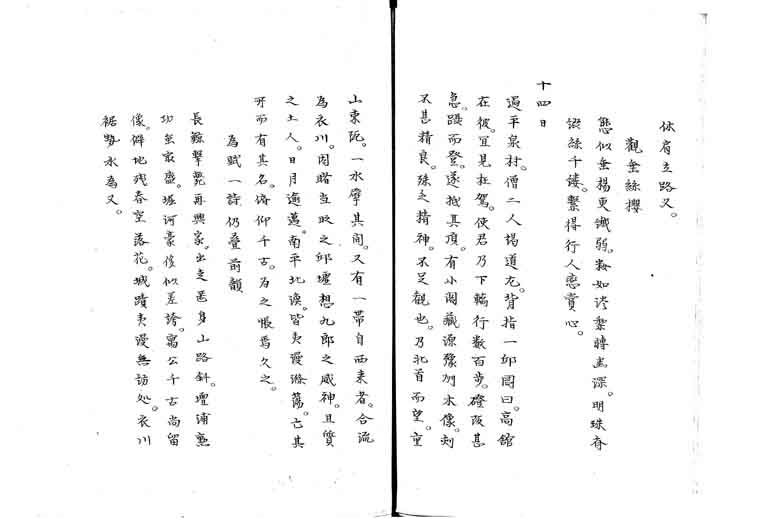 休肩立路叉。
觀垂絲櫻
態似垂楊更纖弱。 如 轉 深。明珠
絲千縷。繫得行人戀賞心。
十四日
過平泉村。僧二人揭道左。背指一邱閣曰。高館
在彼。宜見枉駕。使君乃下輪行數百步。磴阪甚
急。躡而登。遂拔其頂。有小閣藏源豫州木像。刻
不甚精良。殊乏精神。不足觀也。乃北首而望。重
山東阨。一水摩其間。又有一帶自西來者。合流
為衣川。因睹當時之邱壚。想九郎之威神。且質
之土人。日月逾邁。南平北漠。皆夷漫滌蕩。亡其
所而有其名。俯仰千古。為之悵焉久之。
為賦一詩仍疊前韻
長鯨擊斃再興家。出走 身山路斜。壇浦
功至最盛。堀河豪 似差誇。 公千古尚留
像。僻地殘春空落花。城蹟夷漫無訪處。衣川
裾 水為叉。